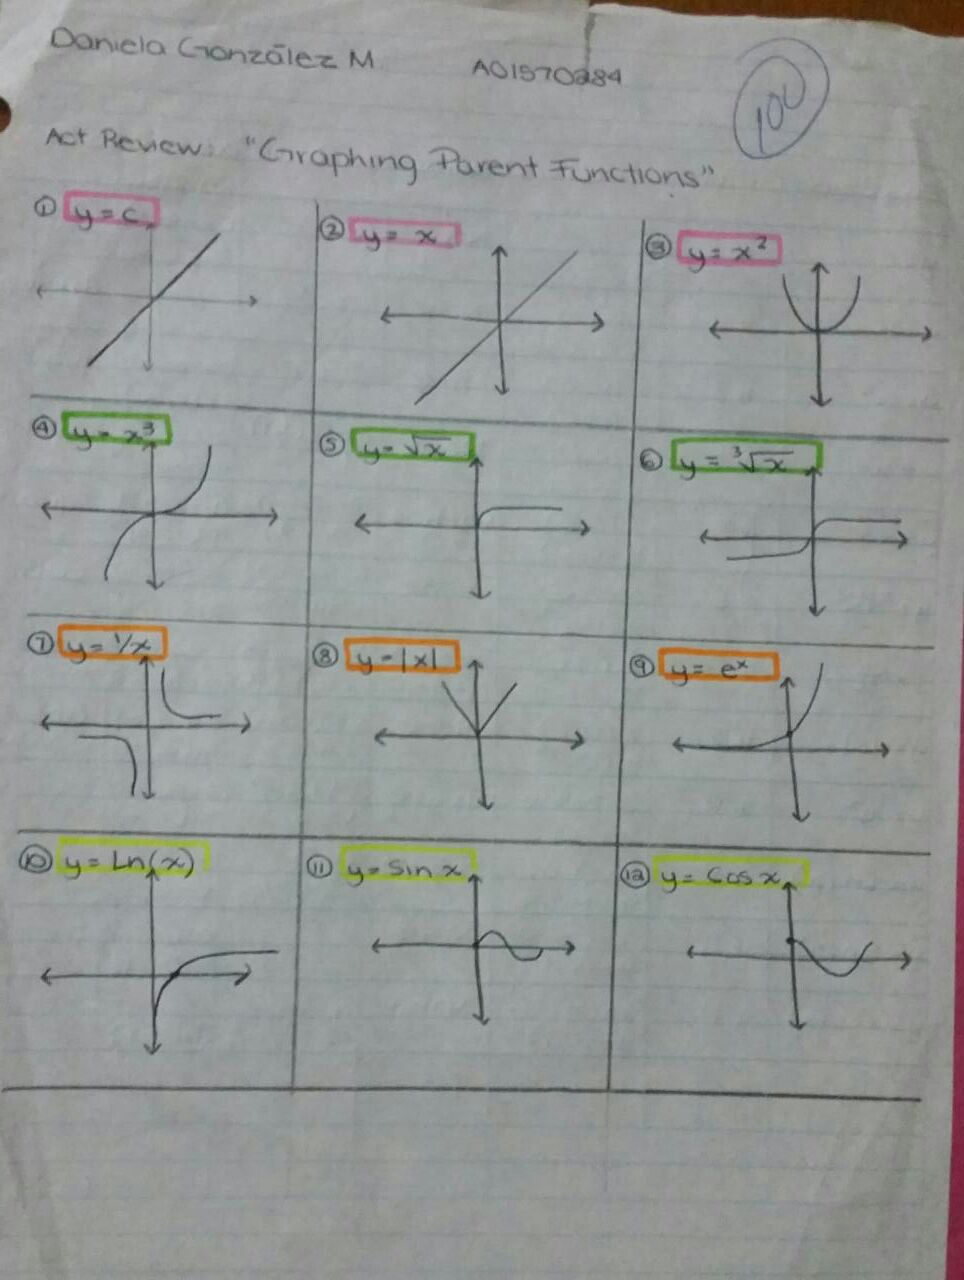 Daniela González M A01570284
100
Act Review: "Graphing Parent Functions"
① y = c
② y = x
③ y = x²
④ y = x³
⑤ y = √x
⑥ y = ³√x
⑦ y = 1/x
⑧ y = |x|
⑨ y = eˣ
⑩ y = Ln(x)
⑪ y = Sin x
⑫ y = Cos x